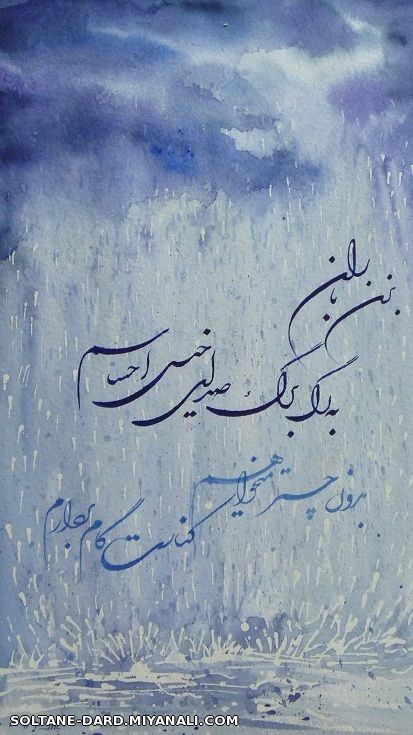 بزن باران
به برگ برگ صدای خیس احساسم
بدون چتر میخواهم
کنارت گام بردارم
SOLTANE-DARD.MIYANALI.COM